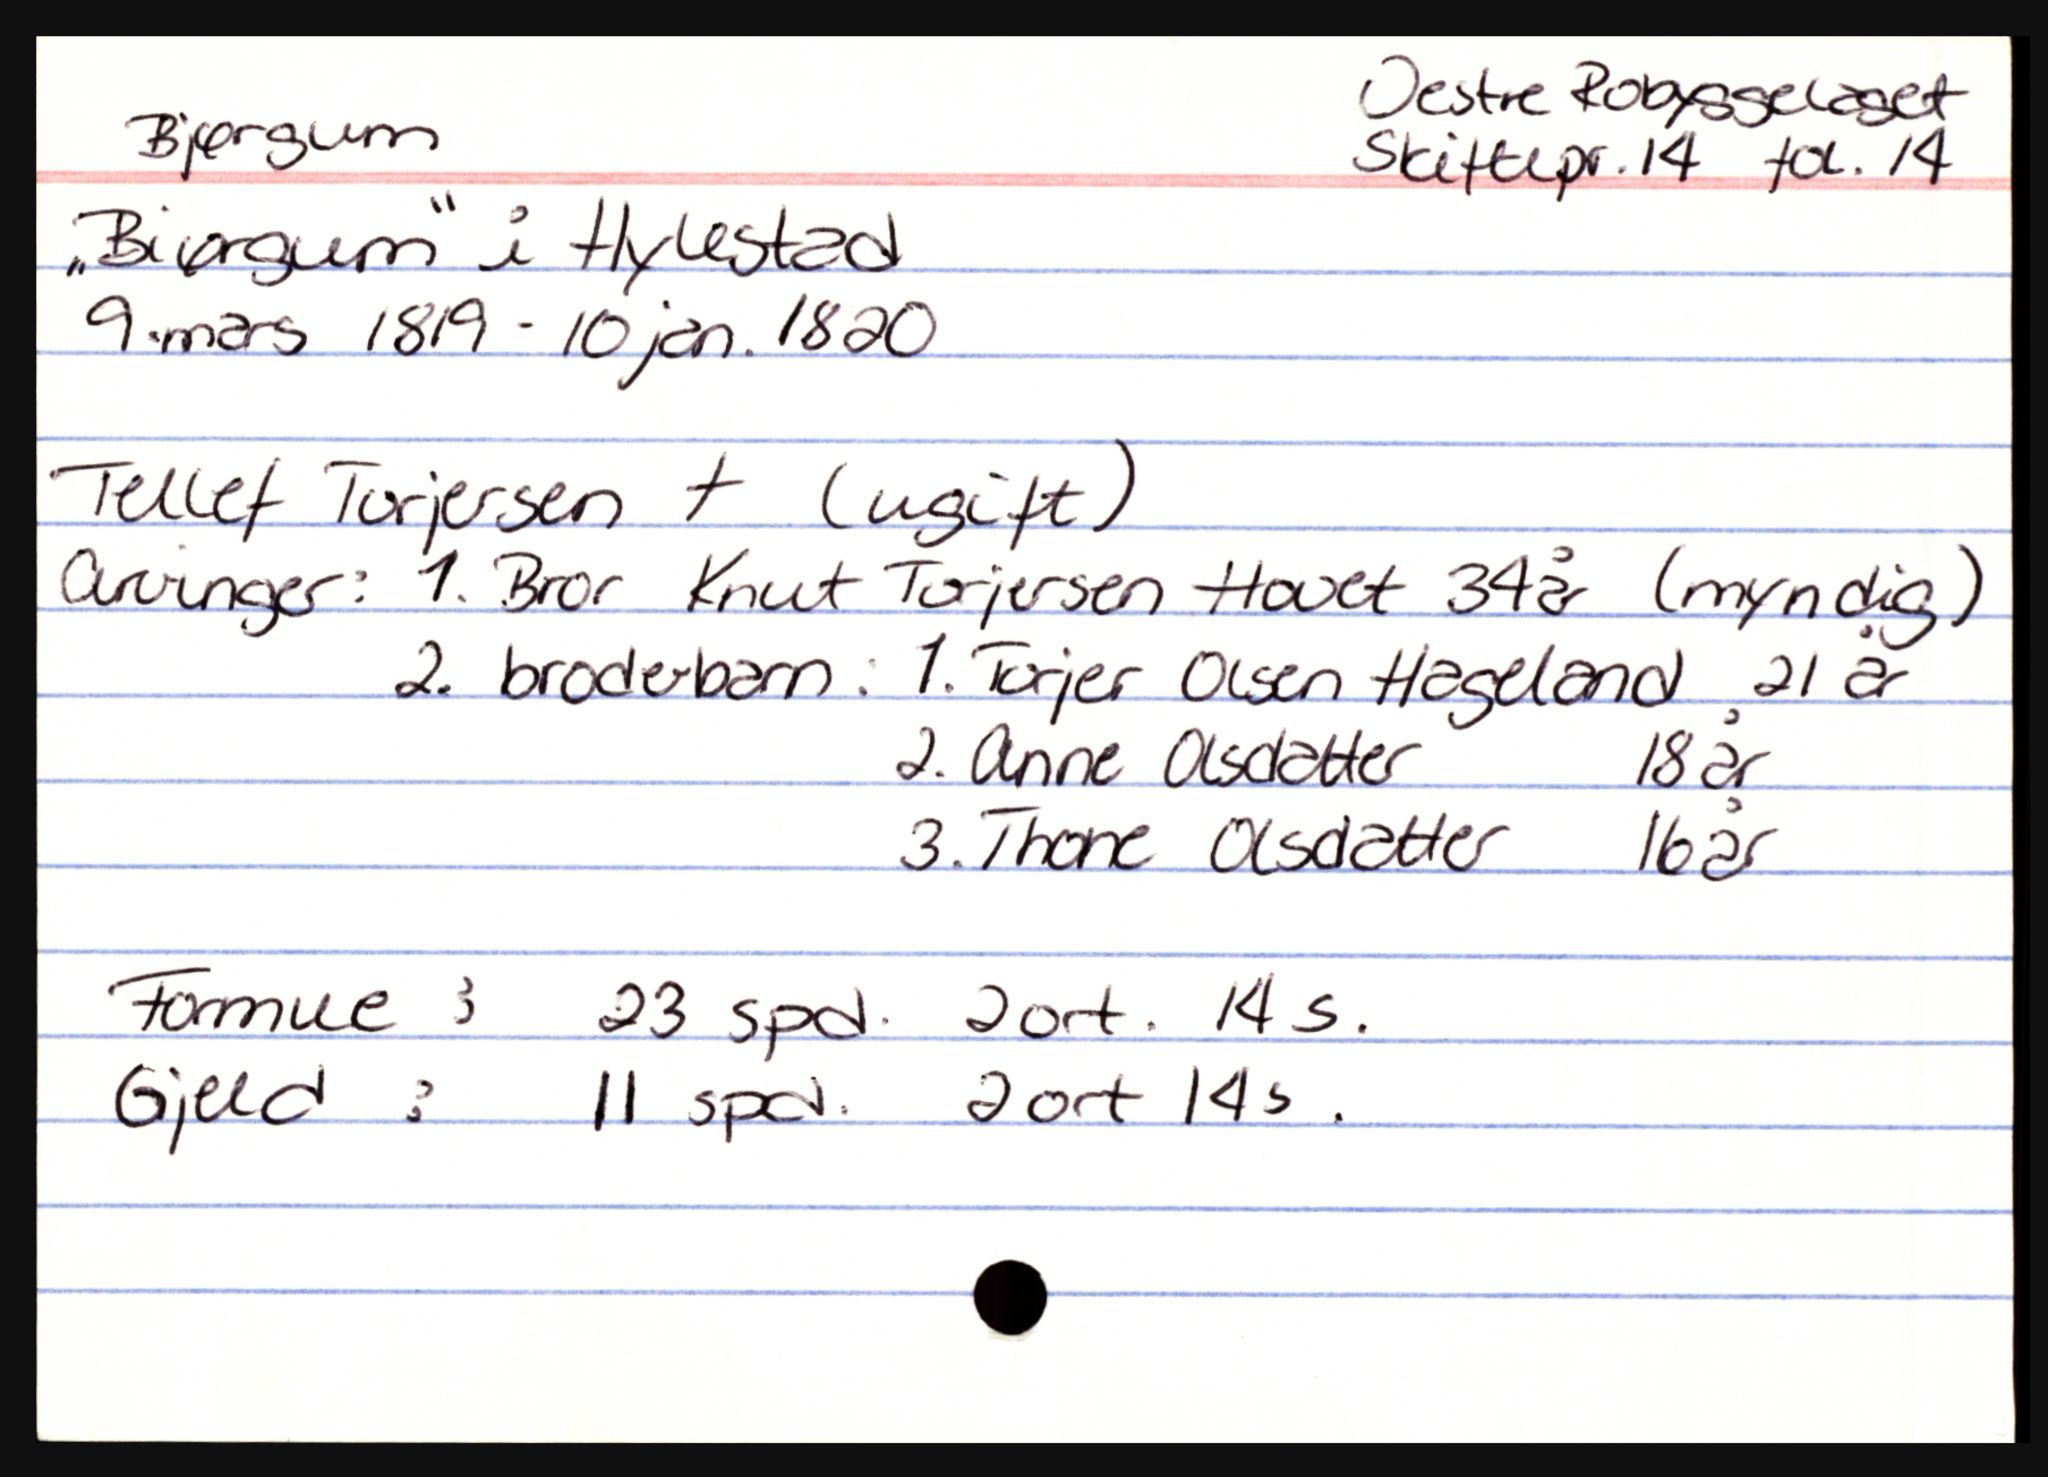 Oestre Robyggelaget
Bjørgum
Skiftepr. 14 fol. 14
„Biørgum“ i Hylestad
9. mars 1819 - 10 jan. 1820
Tellef Torjersen † (ugift)
Arvinger: 1. Bror Knut Torjersen Hovet 34 år (myndig)
2. broderbarn: 1. Torjer Olsen Hageland 21 år
2. Anne Olsdatter 18 år
3. Thone Olsdatter 16 år
Formue : 23 spd. 2 ort. 14 s.
Gjeld : 11 spd. 2 ort 14 s.